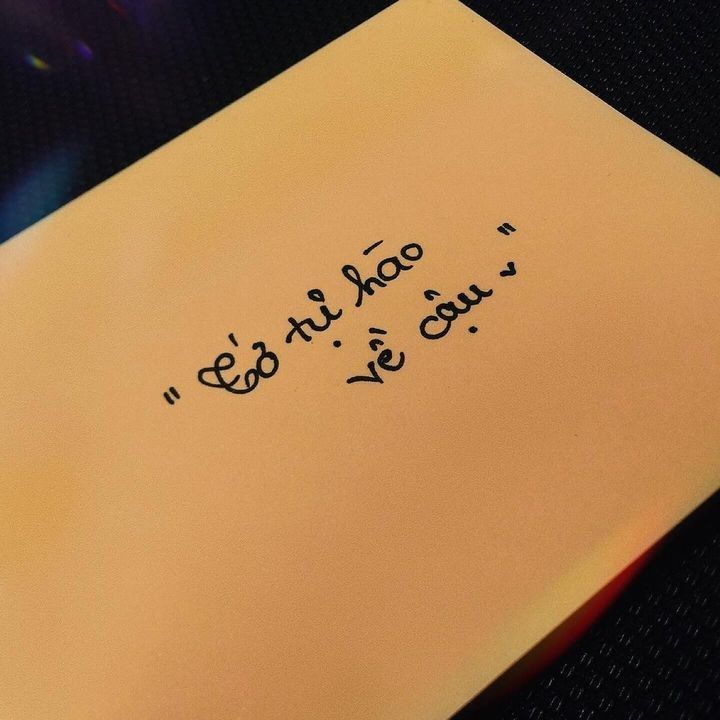 "Tớ tự hào
về cậu."